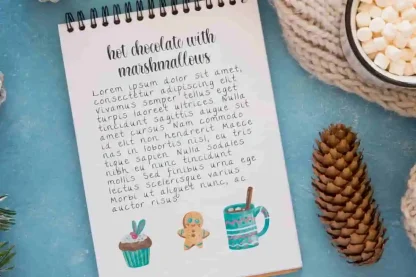 hot chocolate with
marshmallows
Lorem ipsum dolor sit amet,
consectetur adipiscing elit.
Vivamus semper tellus eget
turpis laoreet ultrices. Nulla
tincidunt sagittis augue sed
amet cursus. Nam commodo
id elit non hendrerit. Maece
nas in lobortis nisl, eu tris
tique sapien. Nulla sodales
nibh eu nunc tincidunt
mollis. Sed finibus urna ege
lectus scelerisque varius.
Morbi ut aliquet nunc, ac
auctor risus.